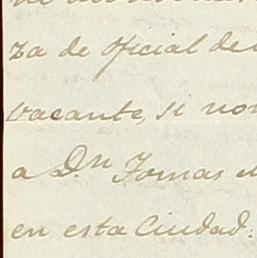 za de oficial de
vacante, si no
a Dn Tomas
en esta Ciudad: